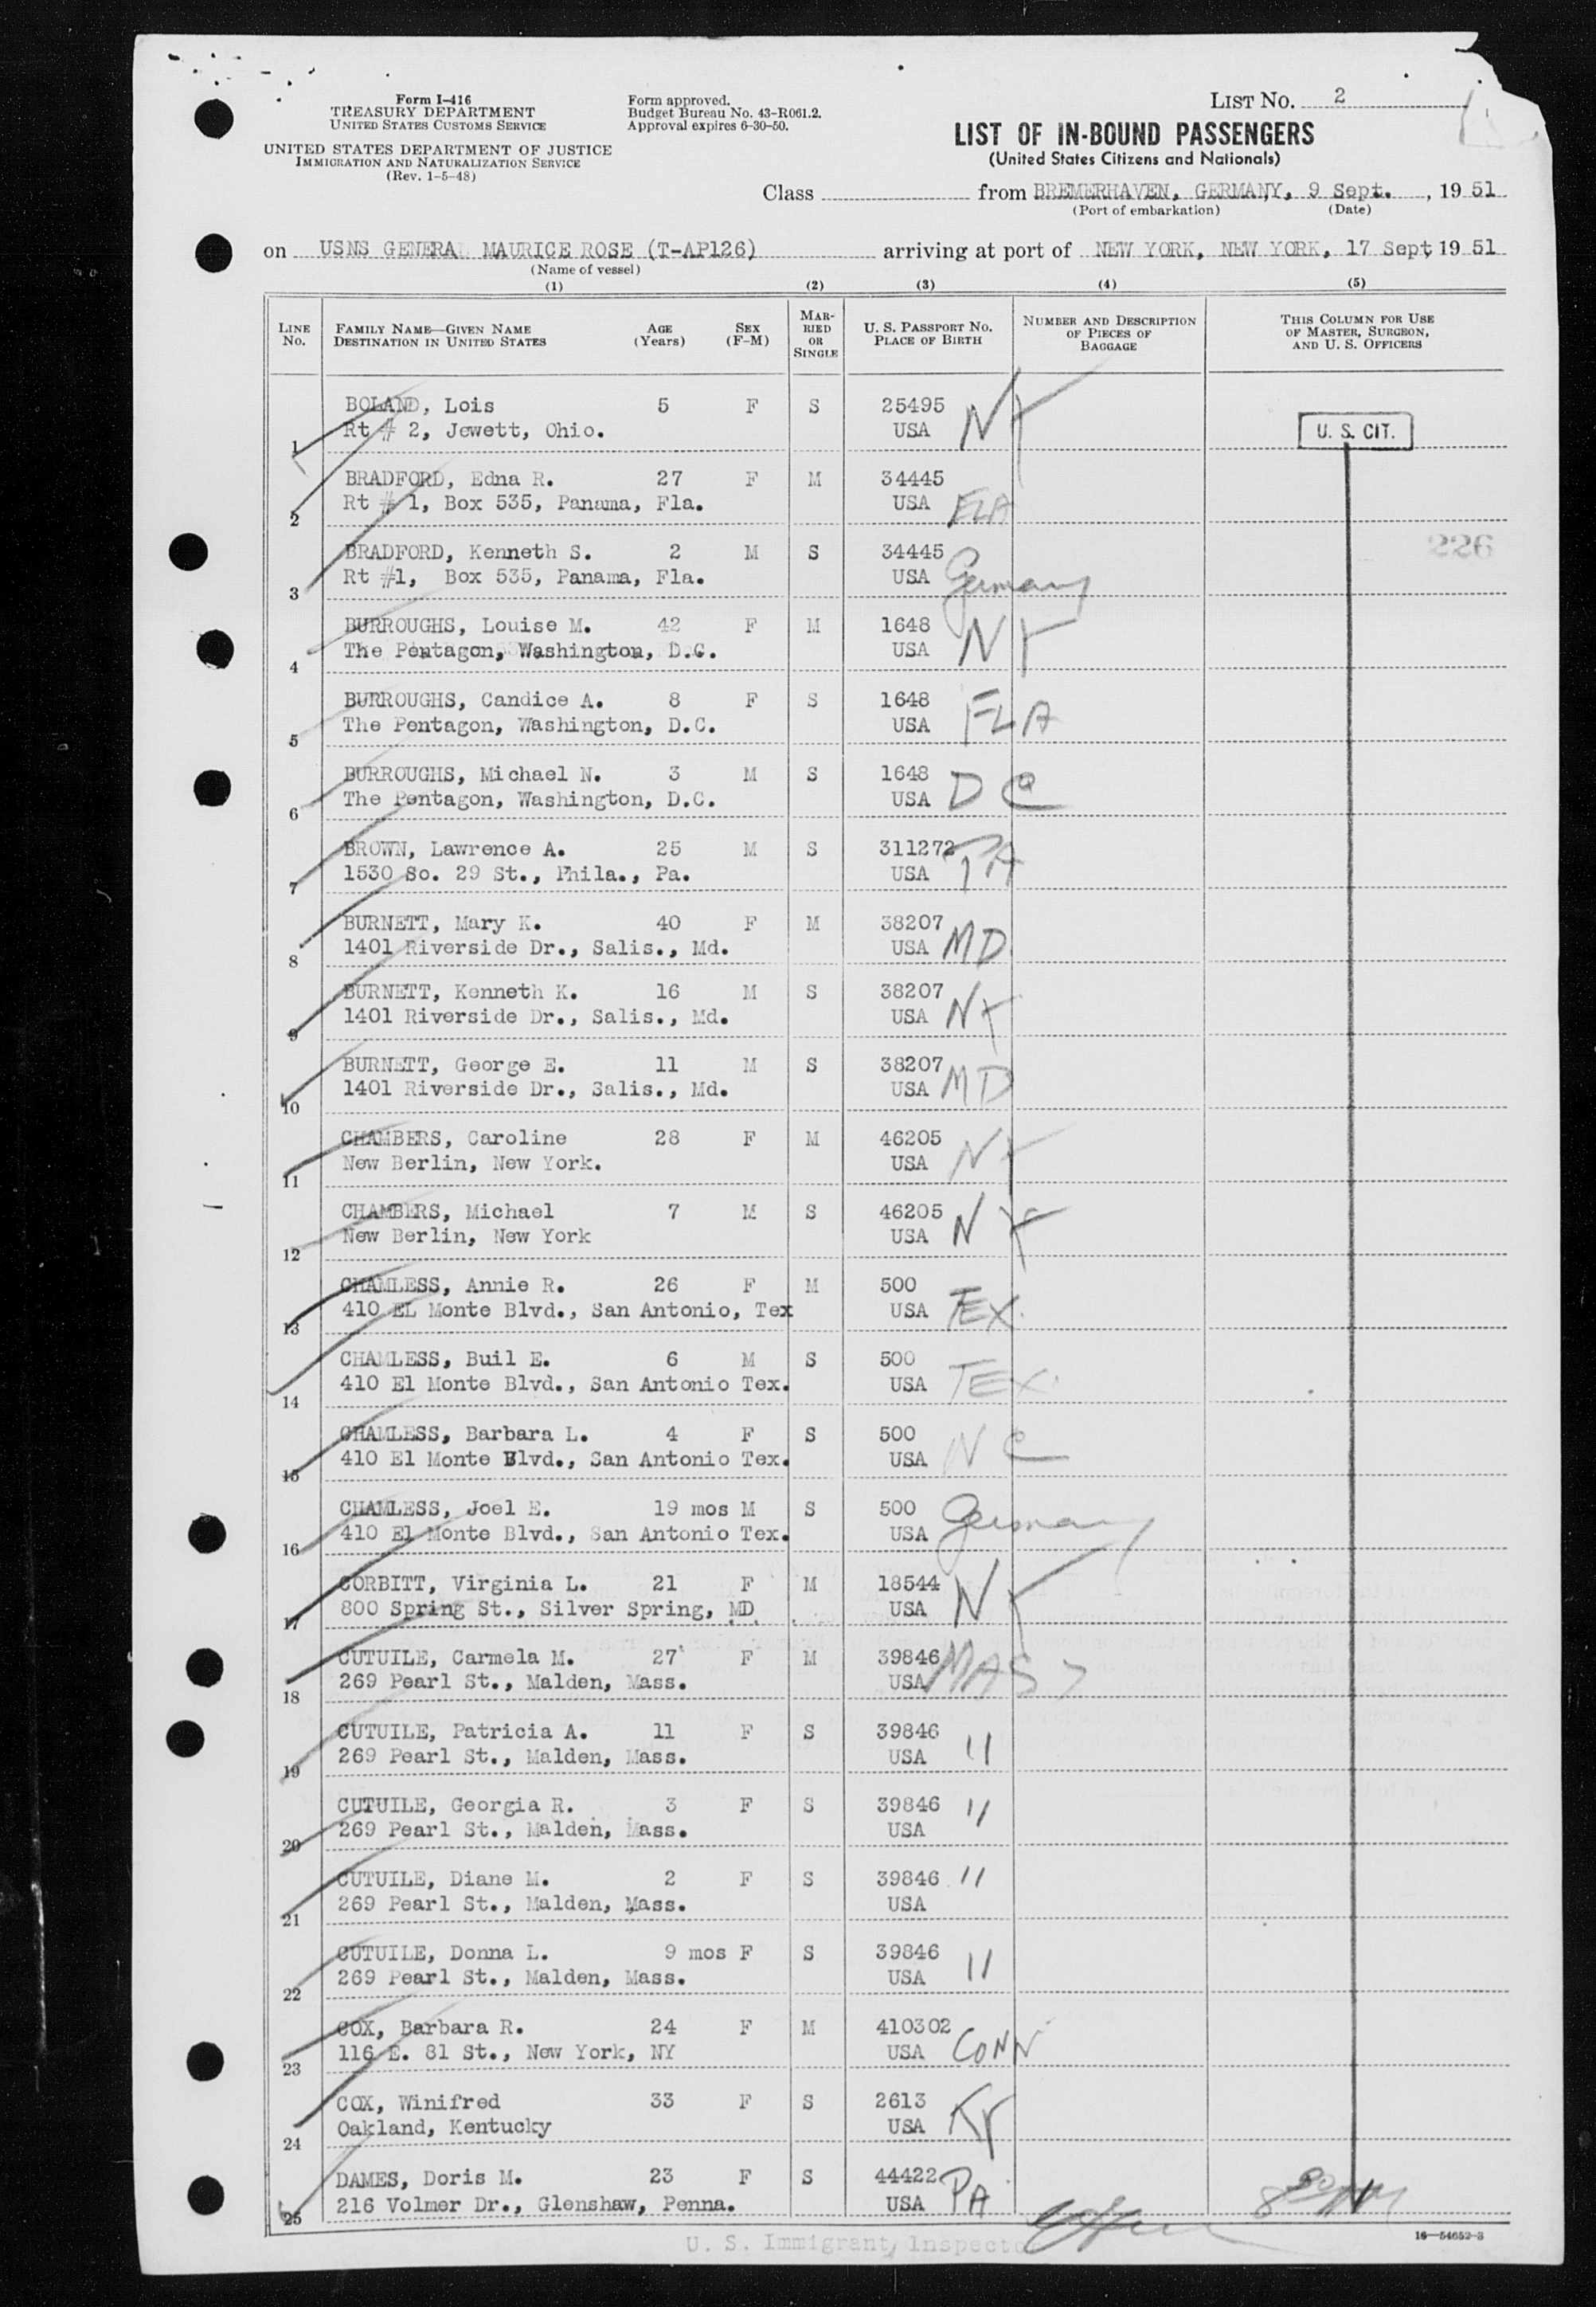 Form I-416
TREASURY DEPARTMENT
UNITED STATES CUSTOMS SERVICE
UNITED STATES DEPARTMENT OF JUSTICE
IMMIGRATION AND NATURALIZATION SERVICE
(Rev. 1-5-48)
Form approved.
Budget Bureau No. 43-R061.2.
Approval expires 6-30-50.
LIST NO. 2
LIST OF IN-BOUND PASSENGERS
(United States Citizens and Nationals)
Class from BREMERHAVEN, GERMANY, 9 Sept., 19 51
(Port of embarkation) (Date)
on USNS GENERAL MAURICE ROSE (T-AP126) arriving at port of NEW YORK, NEW YORK, 17 Sept, 19 51
(Name of vessel)
(1) (2) (3) (4) (5)
LINE NO. FAMILY NAME—GIVEN NAME DESTINATION IN UNITED STATES AGE (Years) SEX (F-M) MARRIED OR SINGLE U. S. PASSPORT NO. PLACE OF BIRTH NUMBER AND DESCRIPTION OF PIECES OF BAGGAGE THIS COLUMN FOR USE OF MASTER, SURGEON, AND U. S. OFFICERS
BOLAND, Lois 5 F S 25495
1 Rt # 2, Jewett, Ohio. USA NY U. S. CIT.
BRADFORD, Edna R. 27 F M 34445
2 Rt # 1, Box 535, Panama, Fla. USA FLA
BRADFORD, Kenneth S. 2 M S 34445 226
3 Rt #1, Box 535, Panama, Fla. USA Germany
BURROUGHS, Louise M. 42 F M 1648
4 The Pentagon, Washington, D.C. USA NY
BURROUGHS, Candice A. 8 F S 1648
5 The Pentagon, Washington, D.C. USA FLA
BURROUGHS, Michael N. 3 M S 1648
6 The Pentagon, Washington, D.C. USA DC
BROWN, Lawrence A. 25 M S 311272
7 1530 So. 29 St., Phila., Pa. USA PA
BURNETT, Mary K. 40 F M 38207
8 1401 Riverside Dr., Salis., Md. USA MD
BURNETT, Kenneth K. 16 M S 38207
9 1401 Riverside Dr., Salis., Md. USA NY
BURNETT, George E. 11 M S 38207
10 1401 Riverside Dr., Salis., Md. USA MD
CHAMBERS, Caroline 28 F M 46205
11 New Berlin, New York. USA NY
CHAMBERS, Michael 7 M S 46205
12 New Berlin, New York USA NY
CHAMLESS, Annie R. 26 F M 500
13 410 EL Monte Blvd., San Antonio, Tex USA TEX.
CHAMLESS, Buil E. 6 M S 500
14 410 El Monte Blvd., San Antonio Tex. USA TEX.
CHAMLESS, Barbara L. 4 F S 500
15 410 El Monte Blvd., San Antonio Tex. USA NC
CHAMLESS, Joel E. 19 mos M S 500
16 410 El Monte Blvd., San Antonio Tex. USA Germany
CORBITT, Virginia L. 21 F M 18544
17 800 Spring St., Silver Spring, MD USA NY
CUTUILE, Carmela M. 27 F M 39846
18 269 Pearl St., Malden, Mass. USA MASS
CUTUILE, Patricia A. 11 F S 39846
19 269 Pearl St., Malden, Mass. USA "
CUTUILE, Georgia R. 3 F S 39846 "
20 269 Pearl St., Malden, Mass. USA
CUTUILE, Diane M. 2 F S 39846 "
21 269 Pearl St., Malden, Mass. USA
CUTUILE, Donna L. 9 mos F S 39846
22 269 Pearl St., Malden, Mass. USA "
COX, Barbara R. 24 F M 410302
23 116 E. 81 St., New York, NY USA CONN
COX, Winifred 33 F S 2613
24 Oakland, Kentucky USA KY
DAMES, Doris M. 23 F S 44422
25 216 Volmer Dr., Glenshaw, Penna. USA PA
U. S. Immigrant Inspector
16—54652-3